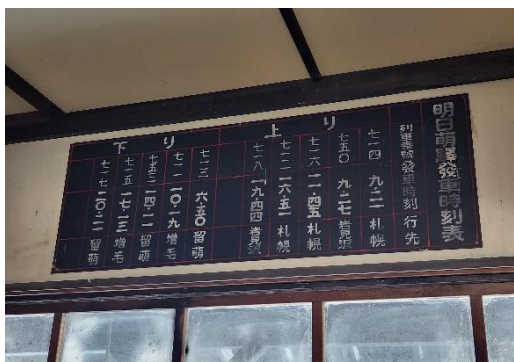 明日萌驛發車時刻表
列車番號 發車時刻 行先
上り
七一四 九・二一 札幌
七五〇 九・二七 岩見沢
七一六 一一・四五 札幌
七一二 一六・五一 札幌
七一八 一九・四四 岩見沢
下り
七一三 六・五〇 留萌
七一一 一〇・一九 増毛
一四・二一 留萌
七一五 一七・一三 増毛
七一七 二〇・二一 留萌